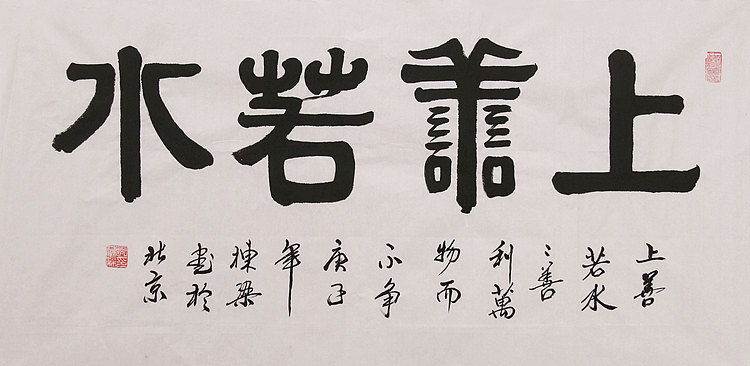 上譱若水
上善
若水
〻善
利萬
物而
不争
庚子
年
棟梁
書於
北京